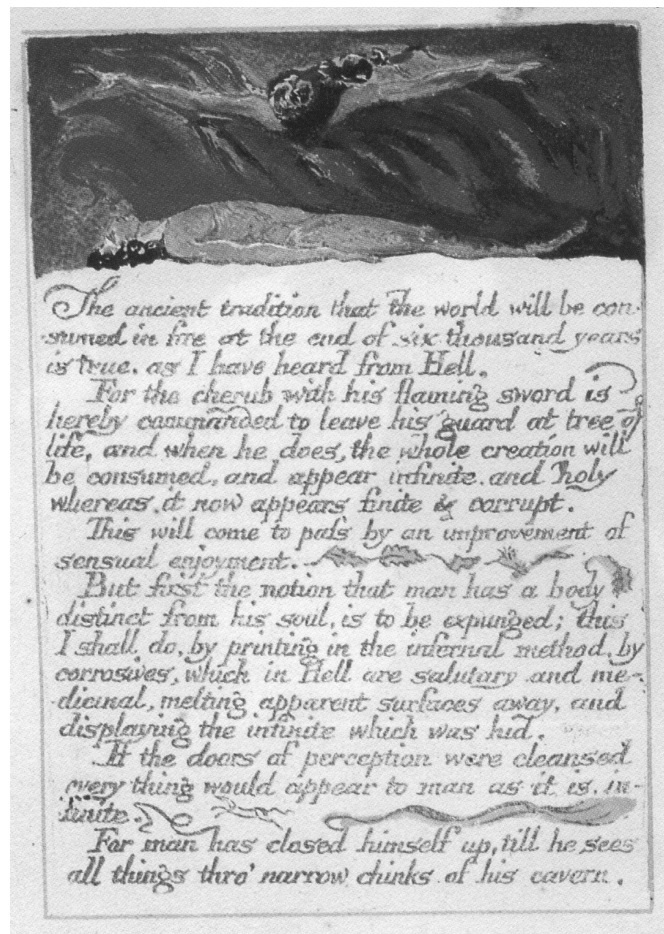 The ancient tradition that the world will be con-
-sumed in fire at the end of six thousand years
is true. as I have heard from Hell.
For the cherub with his flaming sword is
hereby commanded to leave his guard at tree of
life, and when he does, the whole creation will
be consumed, and appear infinite. and holy
whereas it now appears finite & corrupt.
This will come to paſs by an improvement of
sensual enjoyment.
But first the notion that man has a body
distinct from his soul, is to be expunged; this
I shall do, by printing in the infernal method, by
corrosives, which in Hell are salutary and me-
-dicinal, melting apparent surfaces away, and
displaying the infinite which was hid.
If the doors of perception were cleansed
every thing would appear to man as it is, in-
-finite.
For man has closed himself up, till he sees
all things thro' narrow chinks of his cavern.